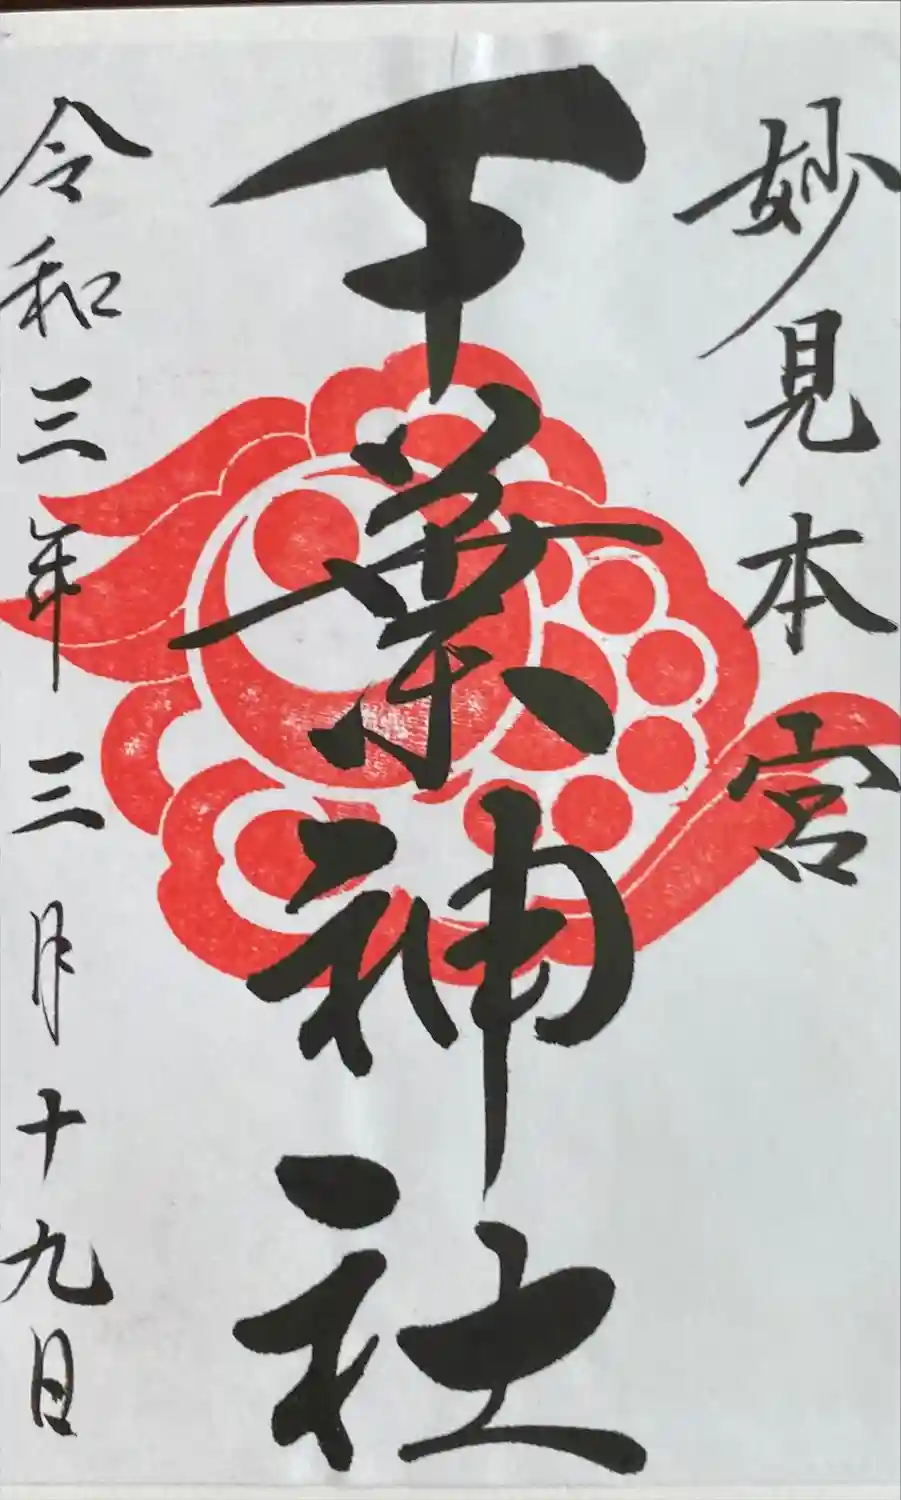 妙見本宮
千葉神社
令和三年三月十九日